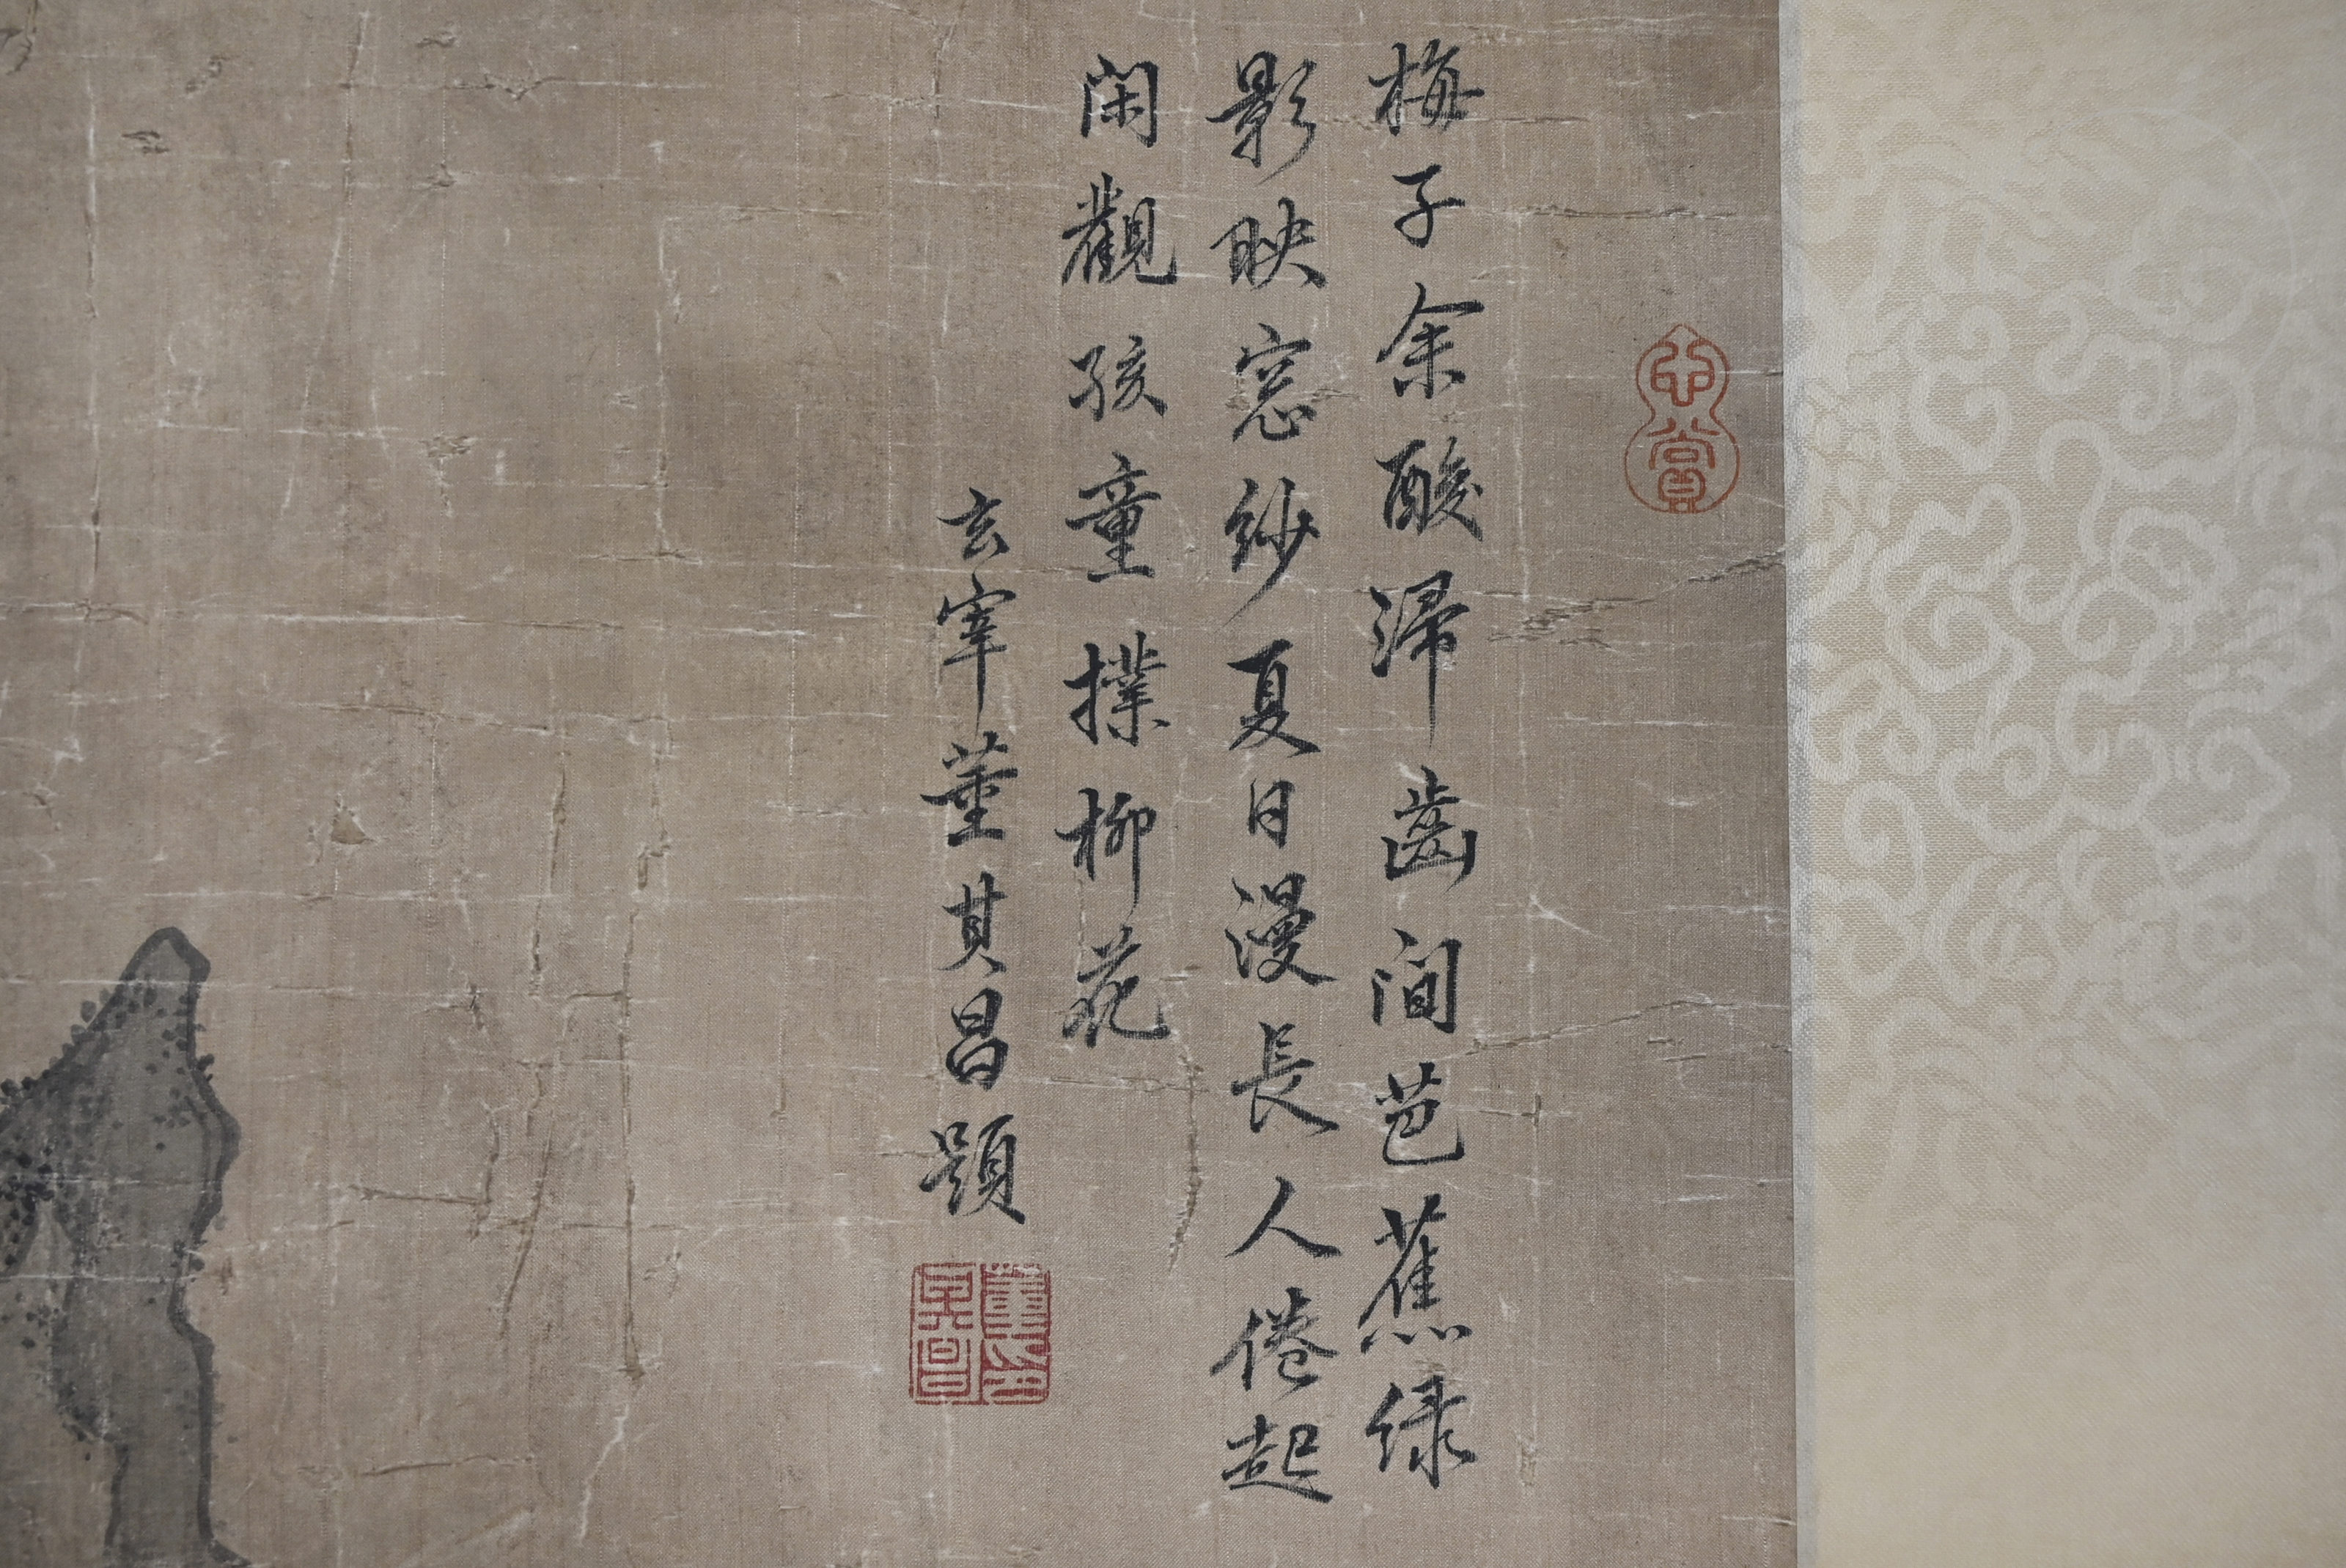 梅子余酸滯齒間芭蕉綠
影映窓紗夏日漫長人倦起
閑觀孩童撲柳花
玄宰董其昌題
董其昌印